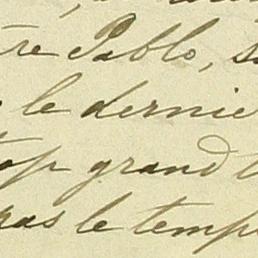 tre Pablo, s
le dernie
top grand
ras le temp